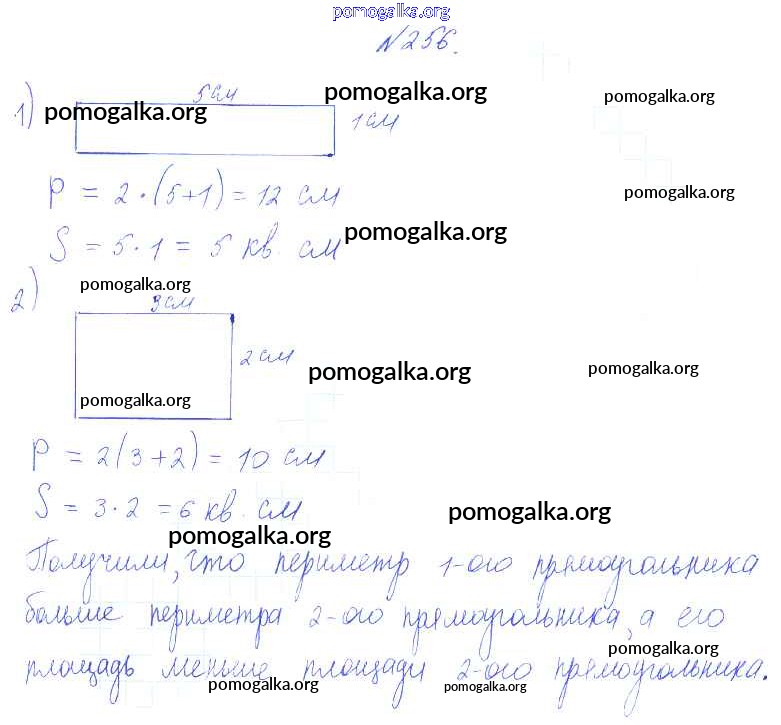 pomogalka.org
№256.
1)
5см
pomogalka.org
pomogalka.org
pomogalka.org
1см
P = 2·(5+1) = 12 см
pomogalka.org
S = 5·1 = 5 кв. см
pomogalka.org
2)
pomogalka.org
3см
2см
pomogalka.org
pomogalka.org
pomogalka.org
P = 2(3+2) = 10 см
S = 3·2 = 6 кв. см
pomogalka.org
pomogalka.org
Получили, что периметр 1-ого прямоугольника
больше периметра 2-ого прямоугольника, а его
pomogalka.org
площадь меньше площади 2-ого прямоугольника.
pomogalka.org
pomogalka.org